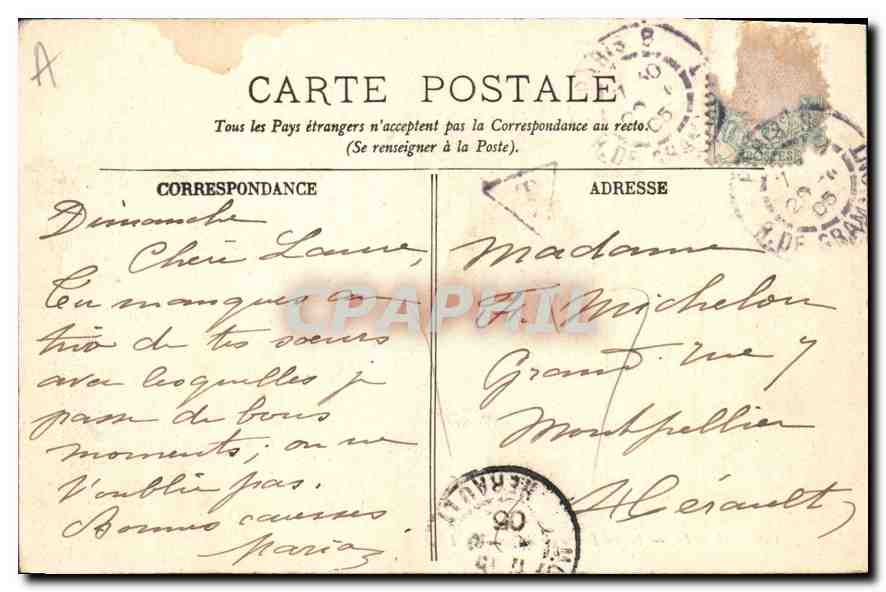 A
CARTE POSTALE
Tous les Pays étrangers n'acceptent pas la Correspondance au recto.
(Se renseigner à la Poste).
CORRESPONDANCE
Dimanche
Chère Laure,
Tu manques au
trio de tes sœurs
avec lesquelles je
passe de bons
moments; on ne
t'oublie pas.
Bonnes caresses
Maria
ADRESSE
Madame
F. Michelon
Grand rue 7
Montpellier
Hérault
T
PARIS 8
R. DE GRAMMONT
05
POSTES
R. DE GRAMMONT
05
HERAULT
05
CPAPHIL